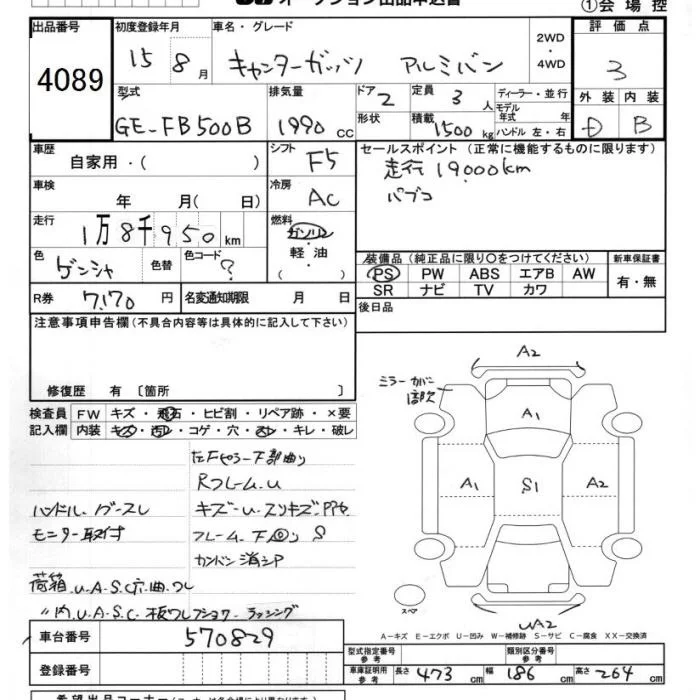 ①会場控
出品番号
4089
初度登録年月
15 8 月
車名・グレード
キャンターガッツ アルミバン
2WD
・
4WD
評価点
3
型式
GE-FB500B
排気量
1990 cc
ドア
2
形状
定員
3 人
積載
1500 kg
ディーラー・並行
モデル年式 年
ハンドル 左・右
外装
D
内装
B
車歴
自家用・( )
シフト
F5
セールスポイント (正常に機能するものに限ります)
走行 19000km
パブコ
車検
年 月( 日)
冷房
AC
走行
1万8千950km
燃料
ガソリン
・
軽油
・
( )
色
ゲンシャ
色替
色コード
?
装備品 (純正品に限り○をつけてください)
PS PW ABS エアB AW
SR ナビ TV カワ
新車保証書
有・無
R券
7,170 円
名変通知期限 月 日
後日品
注意事項申告欄 (不具合内容等は具体的に記入して下さい)
修復歴 有 〔箇所 〕
検査員記入欄
FW キズ・飛石・ヒビ割・リペア跡・×要
内装 キズ・汚レ・コゲ・穴・スレ・キレ・破レ
Rフレーム.u
ハンドル.グースレ
モニター取付
フレーム.下回り S
A2
ミラーカバー
A1
A1
S1
A2
スペア
UA2
A−キズ E−エクボ U−凹み W−補修跡 S−サビ C−腐食 XX−交換済
車台番号
570829
登録番号
型式指定番号
参考
類別区分番号
参考
車庫証明用
参考
長さ 473 cm 幅 186 cm 高さ 264 cm